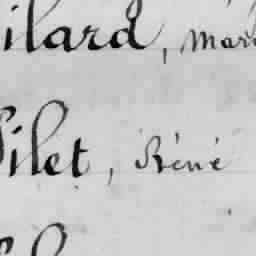 ilard, Mar
ilet, Réné